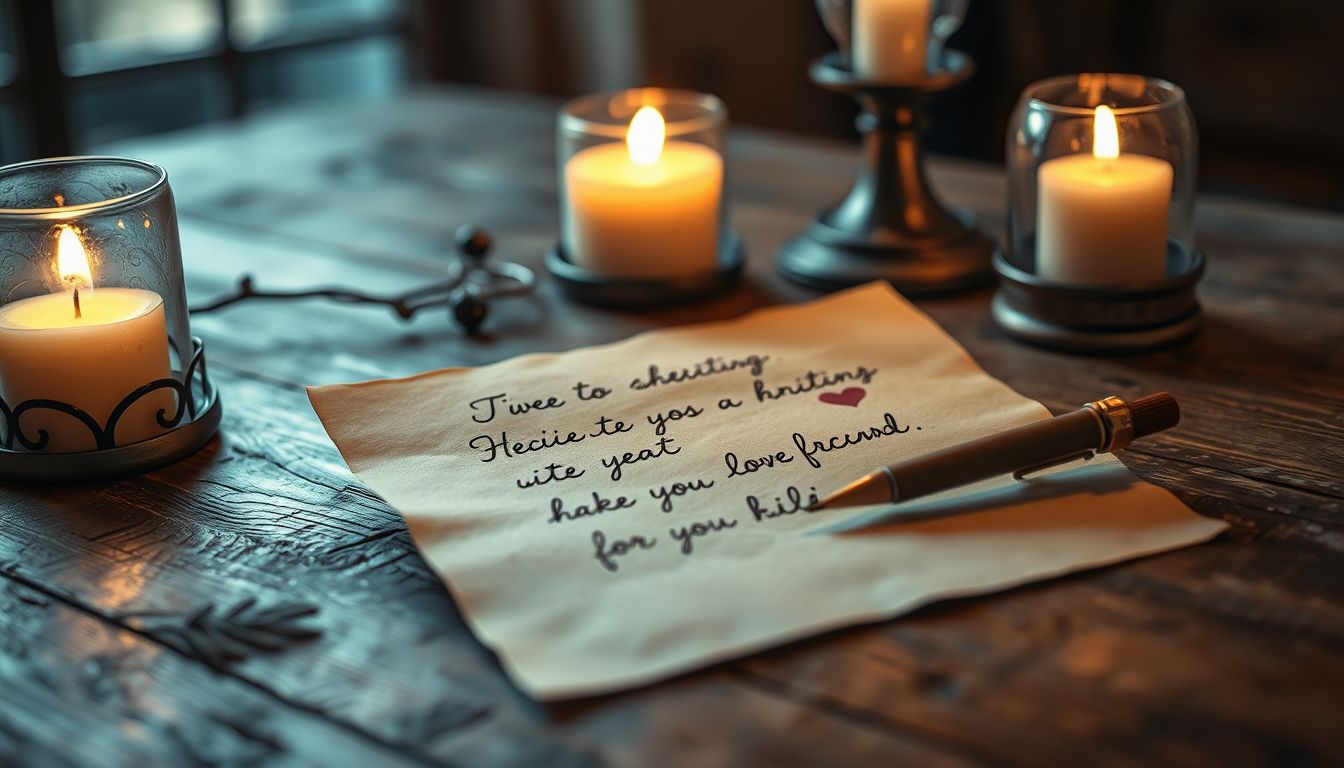 T'wee to sheriting
Heciie.te yos a hniting
uite yeat
hake you love frcurnd.
for you kili